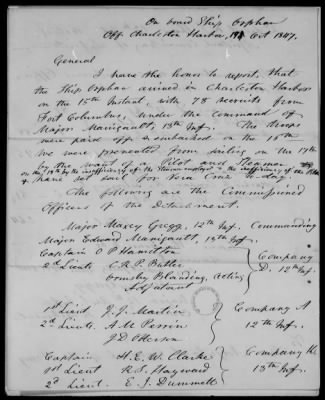 On board Ship Orphan
Off Charleston Harbor, Oct 1847.
General
I have the honor to report, that
the Ship Orphan arrived in Charleston Harbor
on the 15th Instant, with 78 recruits from
Fort Columbus, under the command of
Major Manigault, 13th Inf. The troops
were paid off & embarked on the 16th
We were prevented from sailing on the 17th
by the want of a Pilot and Steamer
on the 18th by the inefficiency of the Steamer employed
& have set sail for Vera Cruz to-day.
The following are the Commissioned
Officers of the Detachment.
Major Maxcy Gregg, 12th Inf. Commanding
Major Edward Manigault, 13th Inf.
Captain O P Hamilton
2nd Lieut C R P Butler
Ormsby Blanding, Acting
Adjutant
Company
D. 12th Inf.
1st Lieut J. J. Martin
2d Lieut. A M Perrin
J D Otterson
Company A
12th Inf.
Captain H. E. W. Clarke
1st Lieut R S. Hayward
2d Lieut. E. J. Dummett
Company K
13th Inf.